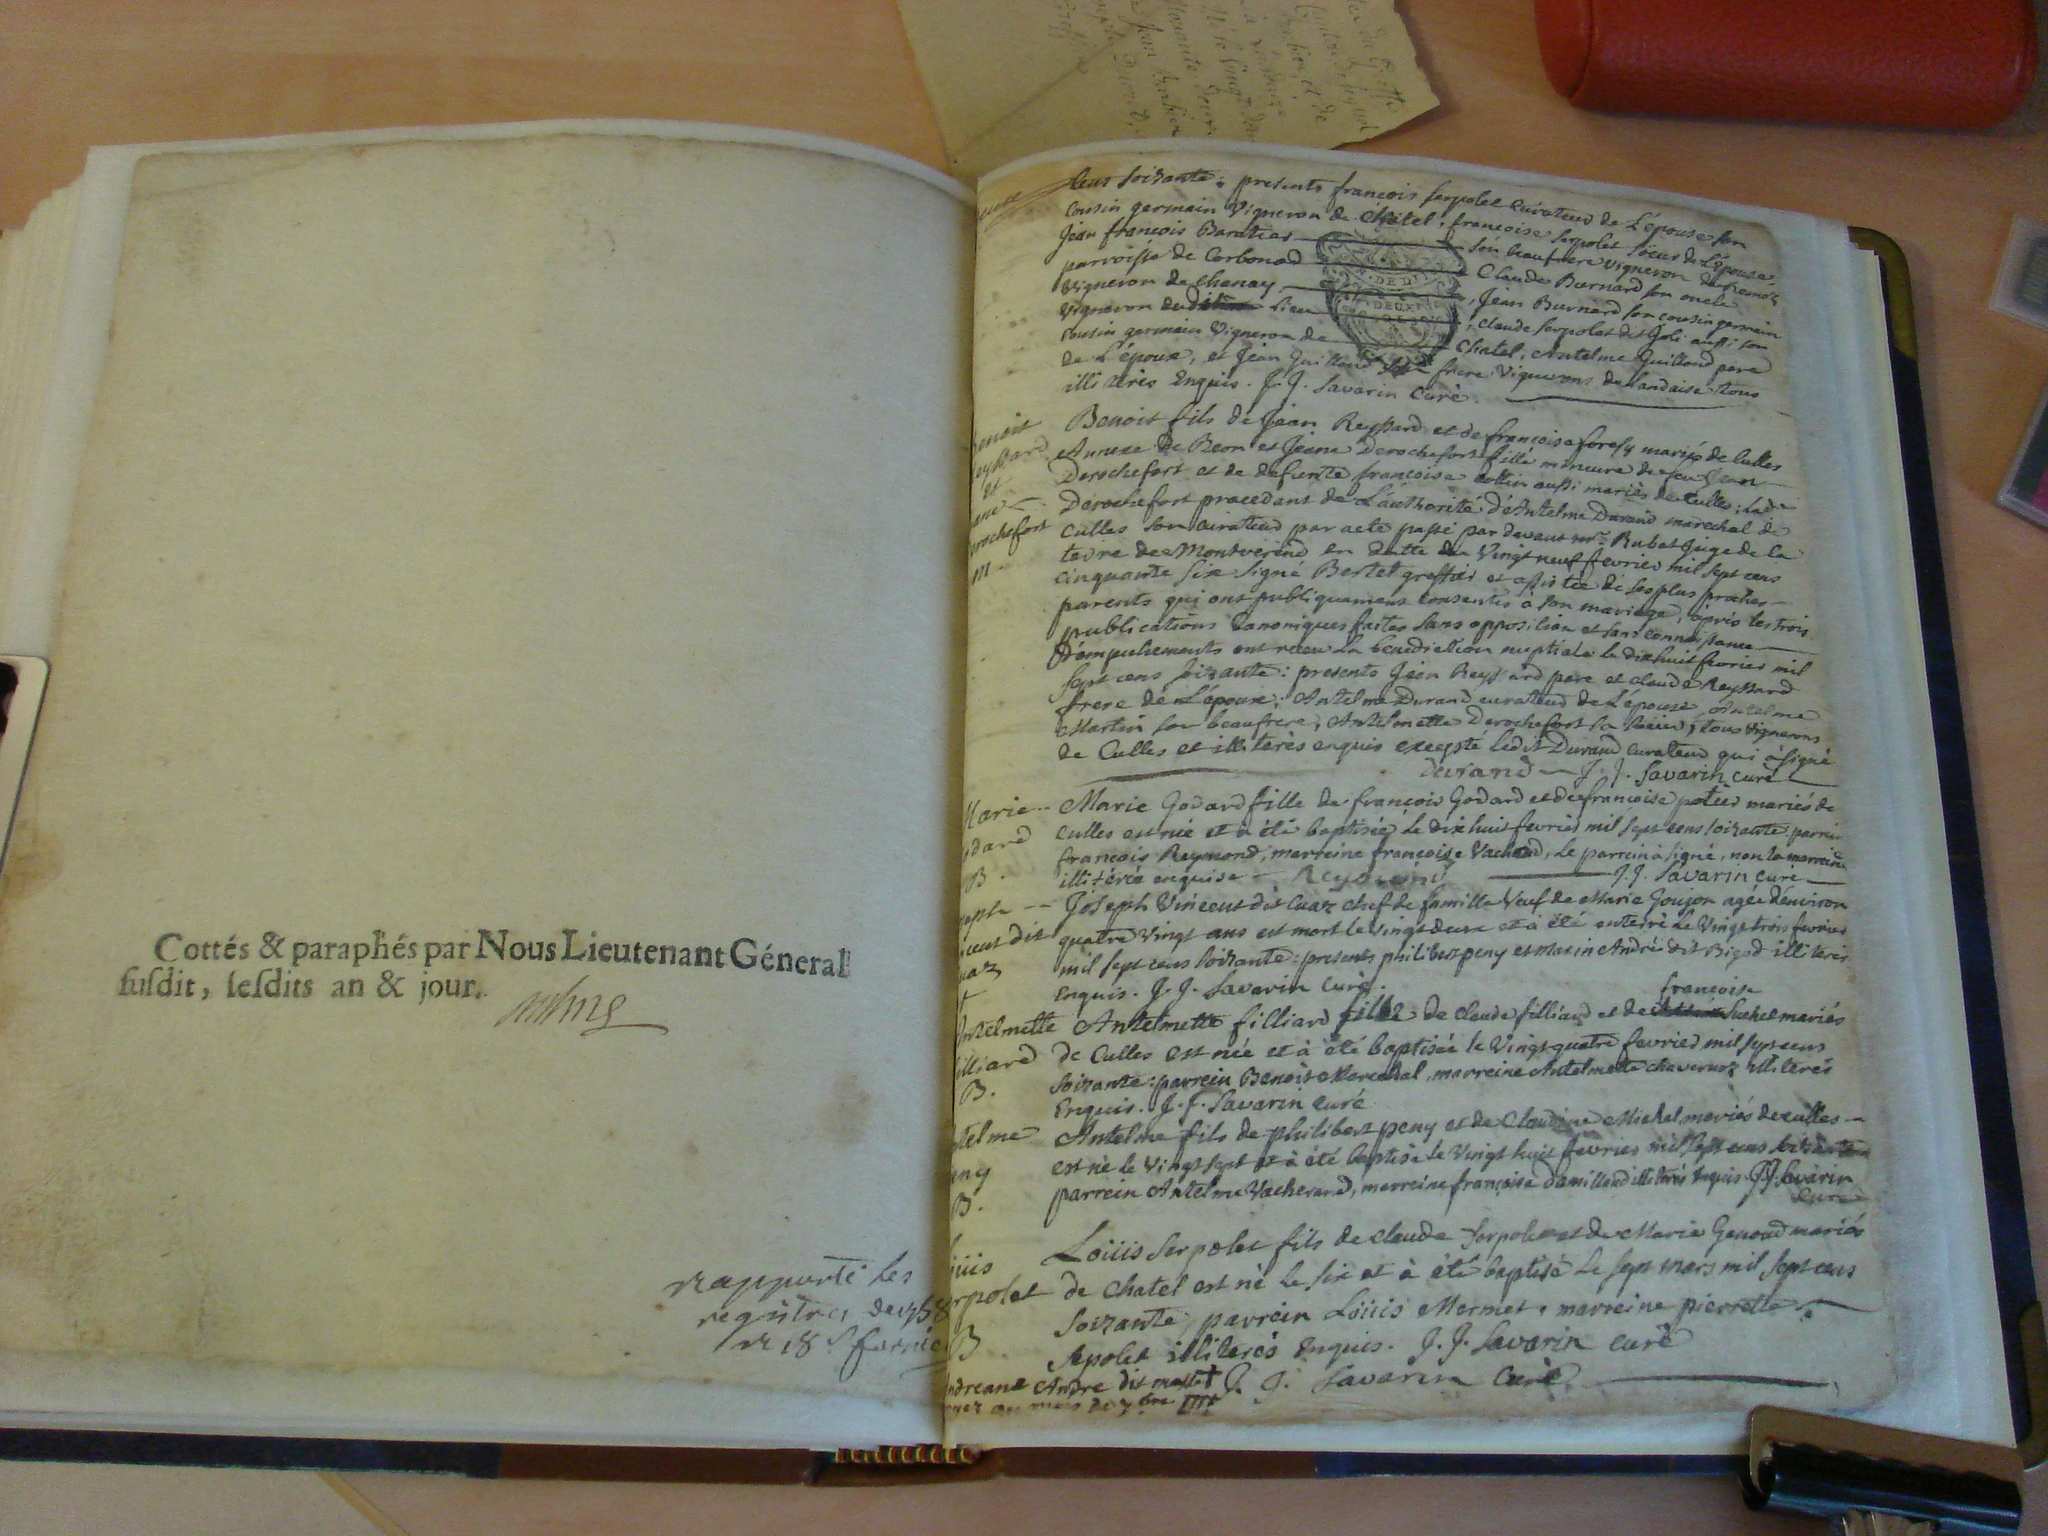 Cottés & paraphés par Nous Lieutenant Géneral
susdit, lesdits an & jour.
rapporté les
registres de 1758
cens soixante : presents francois serpolet curateur de L'épouse son
cousin germain Vigneron de Chatel, francoise serpolet soeur de L'épouse
Jean francois Baratier son beaufrere vigneron
parroisse de Corbonod Claude Burnard son oncle
Vigneron de Chanay, Jean Burnard son cousin germain
Vigneron dudit lieu, claude serpolet dit Joli aussi son
cousin germain Vigneron de Chatel, Antelme Guilland pere
de L'époux, et Jean Guilland son frere Vignerons de Landaise tous
illiterés Enquis. J. J. Savarin Curé.
Benoit
Reyssard
et
Jeane
Derochefort
m
Benoit fils de Jean Reyssard et de francoise mariés de Culles
Annexe de Beon et Jeane Derochefort fille mineure de feu Jean
Derochefort et de defunte francoise collin aussi mariés de Culles ; lade
Derochefort procedant de L'authorité d'Antelme Durand marechal de
Culles son curateur par acte passé par devant mre Rubat Juge de la
terre de Montverand en datte du Vingt neuf fevrier mil sept cens
cinquante six signé Bertet greffier et assistée de ses plus proches
parents qui ont publiquement consentis à son mariage, après les trois
publications Canoniques faites sans opposition et sans connoissance
D'empechements ont receu La benediction nuptiale le dix huit fevrier mil
sept cens soixante : presents Jean Reyssard pere et claude Reyssard
frere de L'époux ; Antelme Durand curateur de L'épouse, Antelme
Martin son beaufrere, Antelmette Derochefort sa soeur, tous Vignerons
de Culles et illiterés enquis excepté ledit Durand curateur qui à signé
durand J. J. Savarin curé
Marie
Godard
B.
Marie Godard fille de francois Godard et de francoise potier mariés de
Culles est née et à été baptisée le dix huit fevrier mil sept cens soixante parrein
francois Reymond, marreine francoise Vachand, Le parrein à signé, non la marreine
illiterée enquise Reymond J. J. Savarin curé
Joseph
Vincent dit
Cuaz
†
Joseph Vincent dit Cuaz chef de famille Veuf de Marie Goujon agée d'environ
quatre Vingt ans est mort le vingt deux et à été enterré Le Vingt trois fevrier
mil sept cens soixante : presents philibert peny et Marin André dit Bigod illiterés
Enquis. J. J. Savarin Curé.
Antelmette
filliard
B.
francoise
Antelmette filliard fille de claude filliard et de Suchet mariés
de Culles est née et à été baptisée le Vingt quatre fevrier mil sept cens
soixante : parrein Benoit Marechal, marreine Antelmette chavernoz illiterés
Enquis. J. J. Savarin curé
Antelme
peny
B.
Antelme fils de philibert peny et de Claudine Michel mariés de culles
est né le Vingt sept et à été baptisé le Vingt huit fevrier mil sept cens soixante
parrein Antelme Vacherand, marreine francoise damilland illiterés Enquis. J. J. Savarin
Curé
Loüis
Serpolet
B
Loüis Serpolet fils de claude Serpolet et de Marie Genoud mariés
de Chatel est né le six et à été baptisé Le sept mars mil sept cens
soixante, parrein Loüis Mermet, marreine pierrette
Sepolet illiterés Enquis. J. J. Savarin curé
Andreane André dit J. J. Savarin Curé
au mois de 7bre